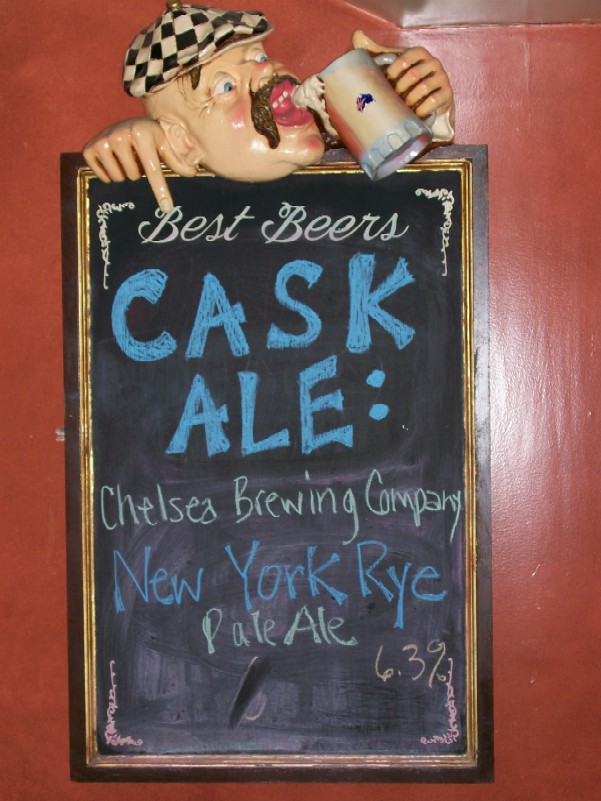 Best Beers
CASK
ALE:
Chelsea Brewing Company
New York Rye
Pale Ale
6.3%